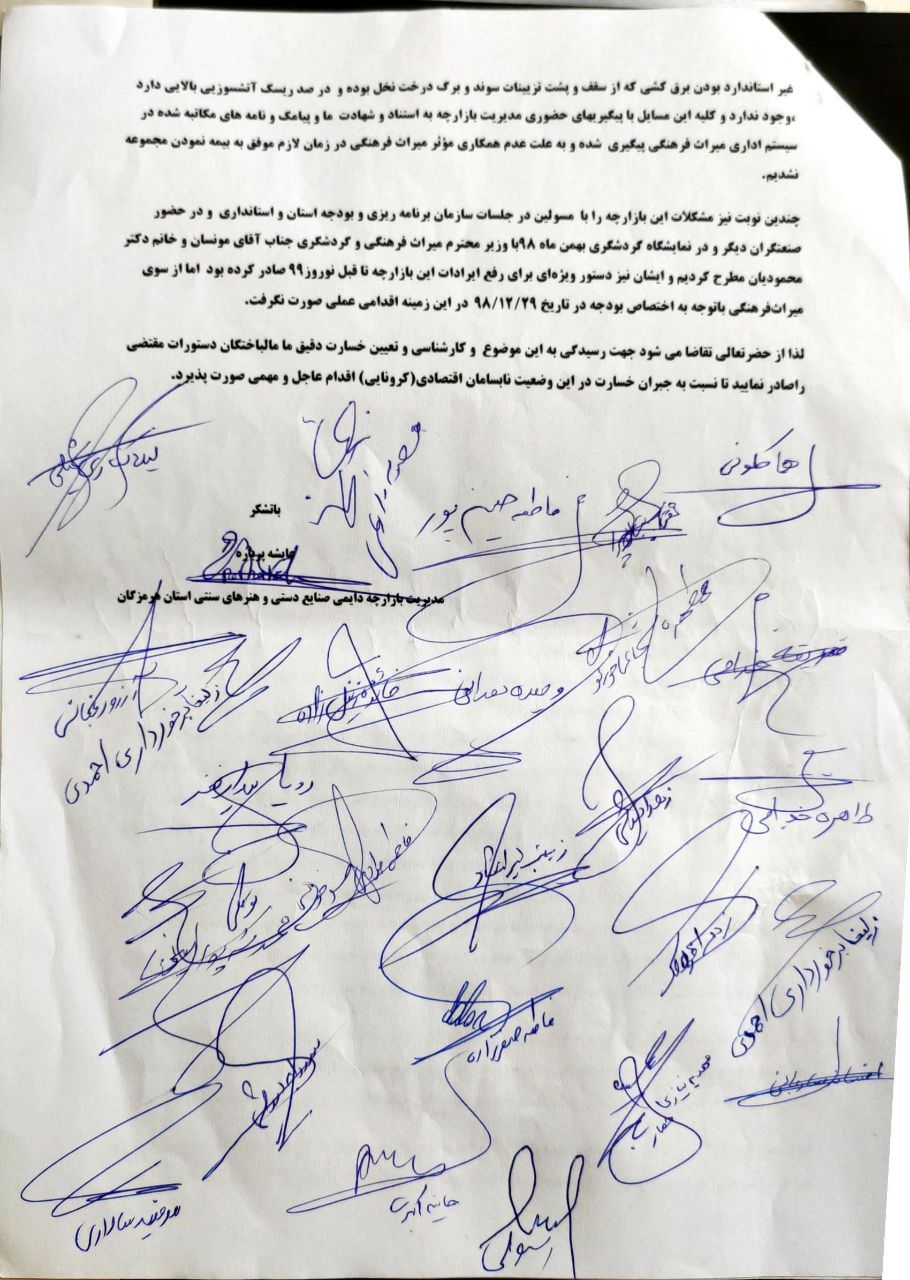 غیر استاندارد بودن برق کشی که از سقف و پشت تزیینات سوند و برگ درخت نخل بوده و در صد ریسک آتشسوزیی بالایی دارد
،وجود ندارد و کلیه این مسایل با پیگیریهای حضوری مدیریت بازارچه به استناد و شهادت ما و پیامک و نامه های مکاتبه شده در
سیستم اداری میراث فرهنگی پیگیری شده و به علت عدم همکاری مؤثر میراث فرهنگی در زمان لازم موفق به بیمه نمودن مجموعه
نشدیم.
چندین نوبت نیز مشکلات این بازارچه را با مسولین در جلسات سازمان برنامه ریزی و بودجه استان و استانداری و در حضور
صنعتگران دیگر و در نمایشگاه گردشگری بهمن ماه ۹۸با وزیر محترم میراث فرهنگی و گردشگری جناب آقای مونسان و خانم دکتر
محمودیان مطرح کردیم و ایشان نیز دستور ویژه‌ای برای رفع ایرادات این بازارچه تا قبل نوروز۹۹ صادر کرده بود اما از سوی
میراث‌فرهنگی باتوجه به اختصاص بودجه در تاریخ ۹۸/۱۲/۲۹ در این زمینه اقدامی عملی صورت نگرفت.
لذا از حضرتعالی تقاضا می شود جهت رسیدگی به این موضوع و کارشناسی و تعیین خسارت دقیق ما مالباختگان دستورات مقتضی
راصادر نمایید تا نسبت به جبران خسارت در این وضعیت نابسامان اقتصادی(کرونایی) اقدام عاجل و مهمی صورت پذیرد.
هما کلونی
فاطمه حسین پور
باتشکر
عایشه پردازه
مدیریت بازارچه دایمی صنایع دستی و هنرهای سنتی استان هرمزگان
صدیقه خدامی
وحیده همدانی
زلیخا برخورداری احمدی
رویا
طاهره خدامی
زینب
زلیخا برخورداری احمدی
فاطمه صفرزاده
مرضیه سالاری
حانیه اکبری
رسولی